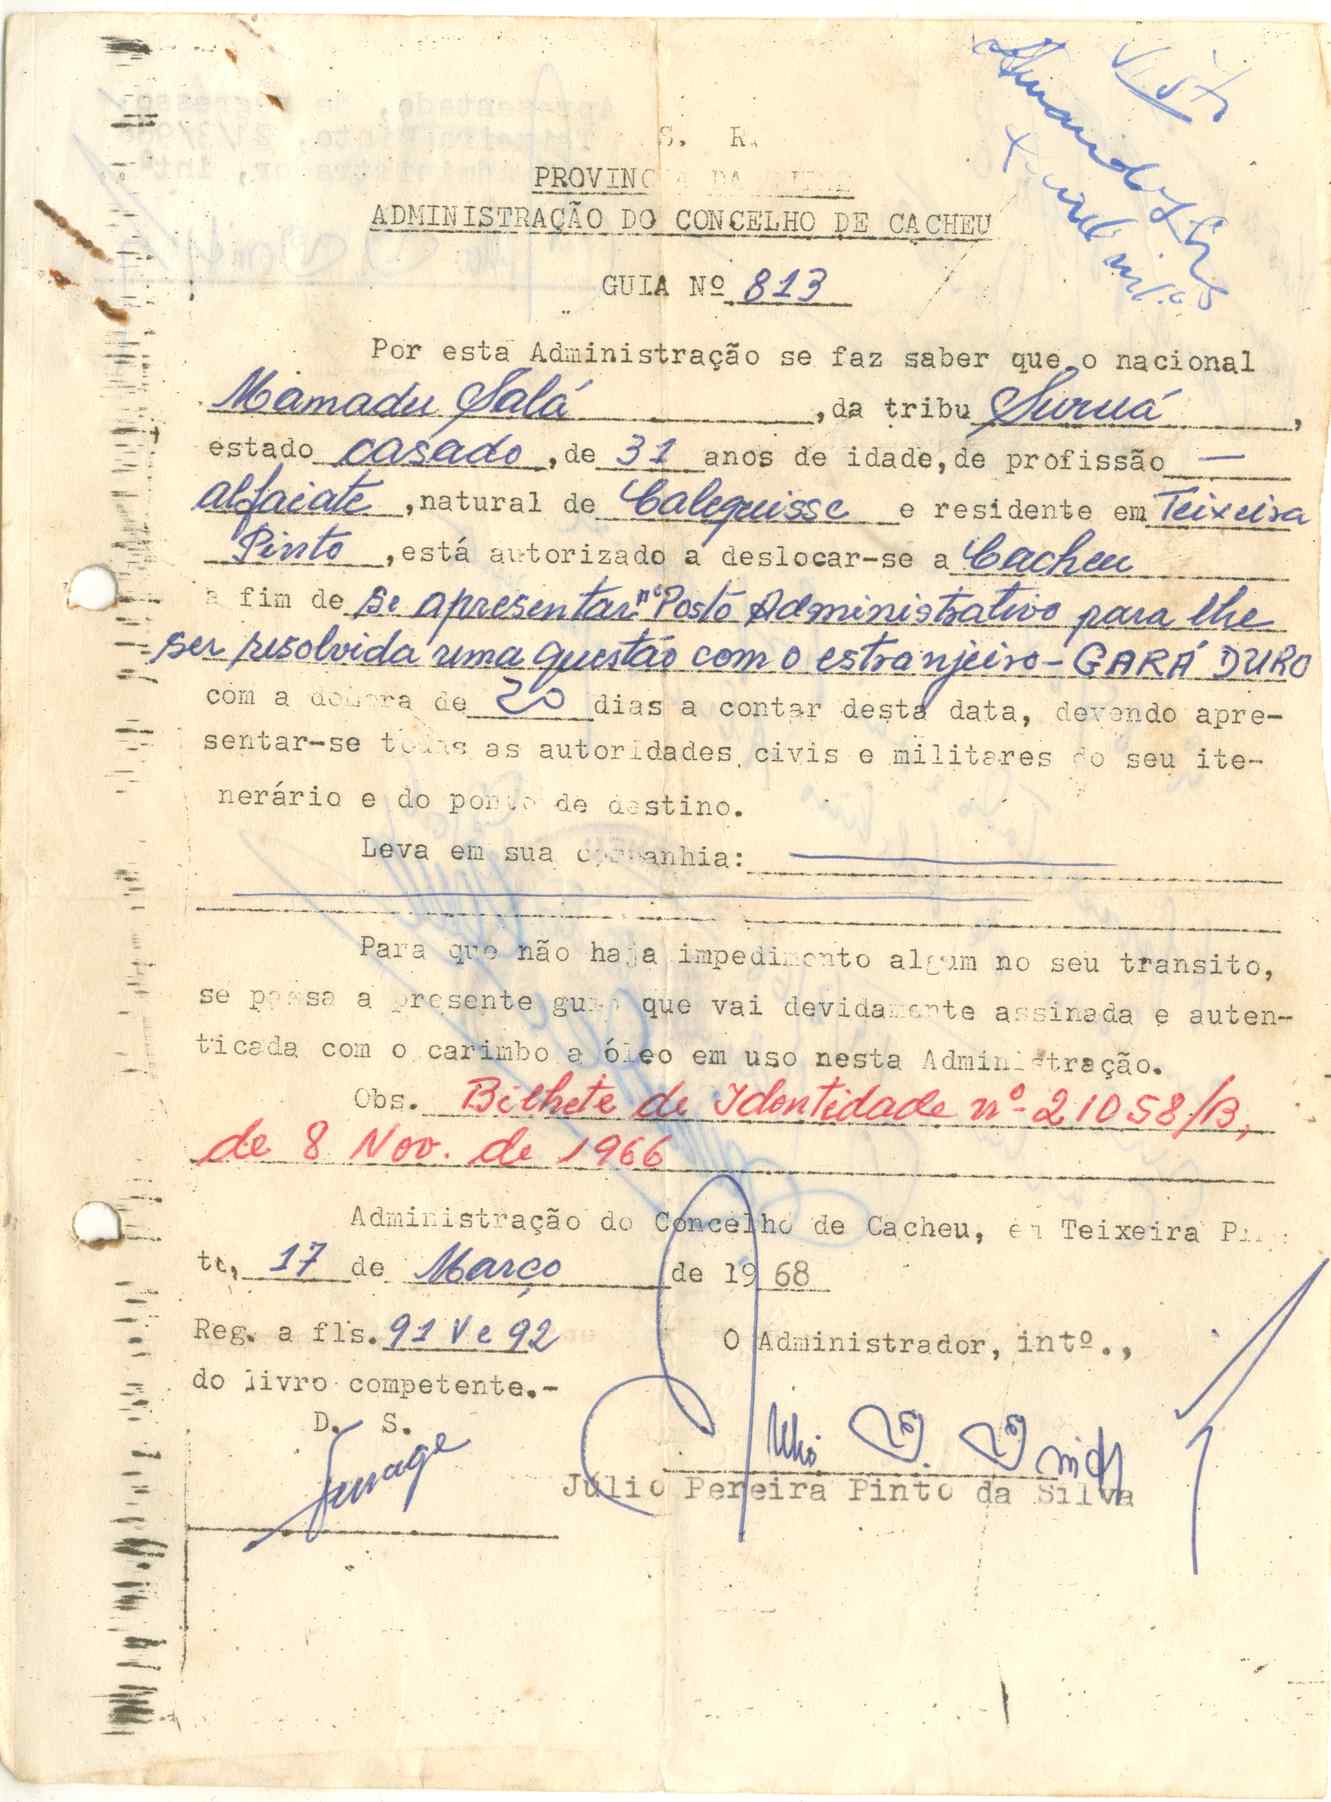 Visto
S. R.
PROVINCIA DA GUINÉ
ADMINISTRAÇÃO DO CONCELHO DE CACHEU
GUIA Nº 813
Por esta Administração se faz saber que o nacional
Mamadu Salá, da tribu Suruá,
estado casado, de 31 anos de idade, de profissão —
alfaiate, natural de Calequisse e residente em Teixeira
Pinto, está autorizado a deslocar-se a Cacheu
a fim de se apresentar nº Posto Administrativo para lhe
ser resolvida uma questão com o estranjeiro - GARÁ DURO
com a demora de 20 dias a contar desta data, devendo apre-
sentar-se todas as autoridades civis e militares do seu ite-
nerário e do ponto de destino.
Leva em sua companhia:
Para que não haja impedimento algum no seu transito,
se passa a presente guia que vai devidamente assinada e auten-
ticada com o carimbo a óleo em uso nesta Administração.
Obs. Bilhete de Identidade nº 21058/B,
de 8 Nov. de 1966
Administração do Concelho de Cacheu, em Teixeira Pin-
to, 17 de Março de 1968
Reg. a fls. 91 V e 92
O Administrador, intº.,
do livro competente.-
D. S.
Júlio Pereira Pinto da Silva